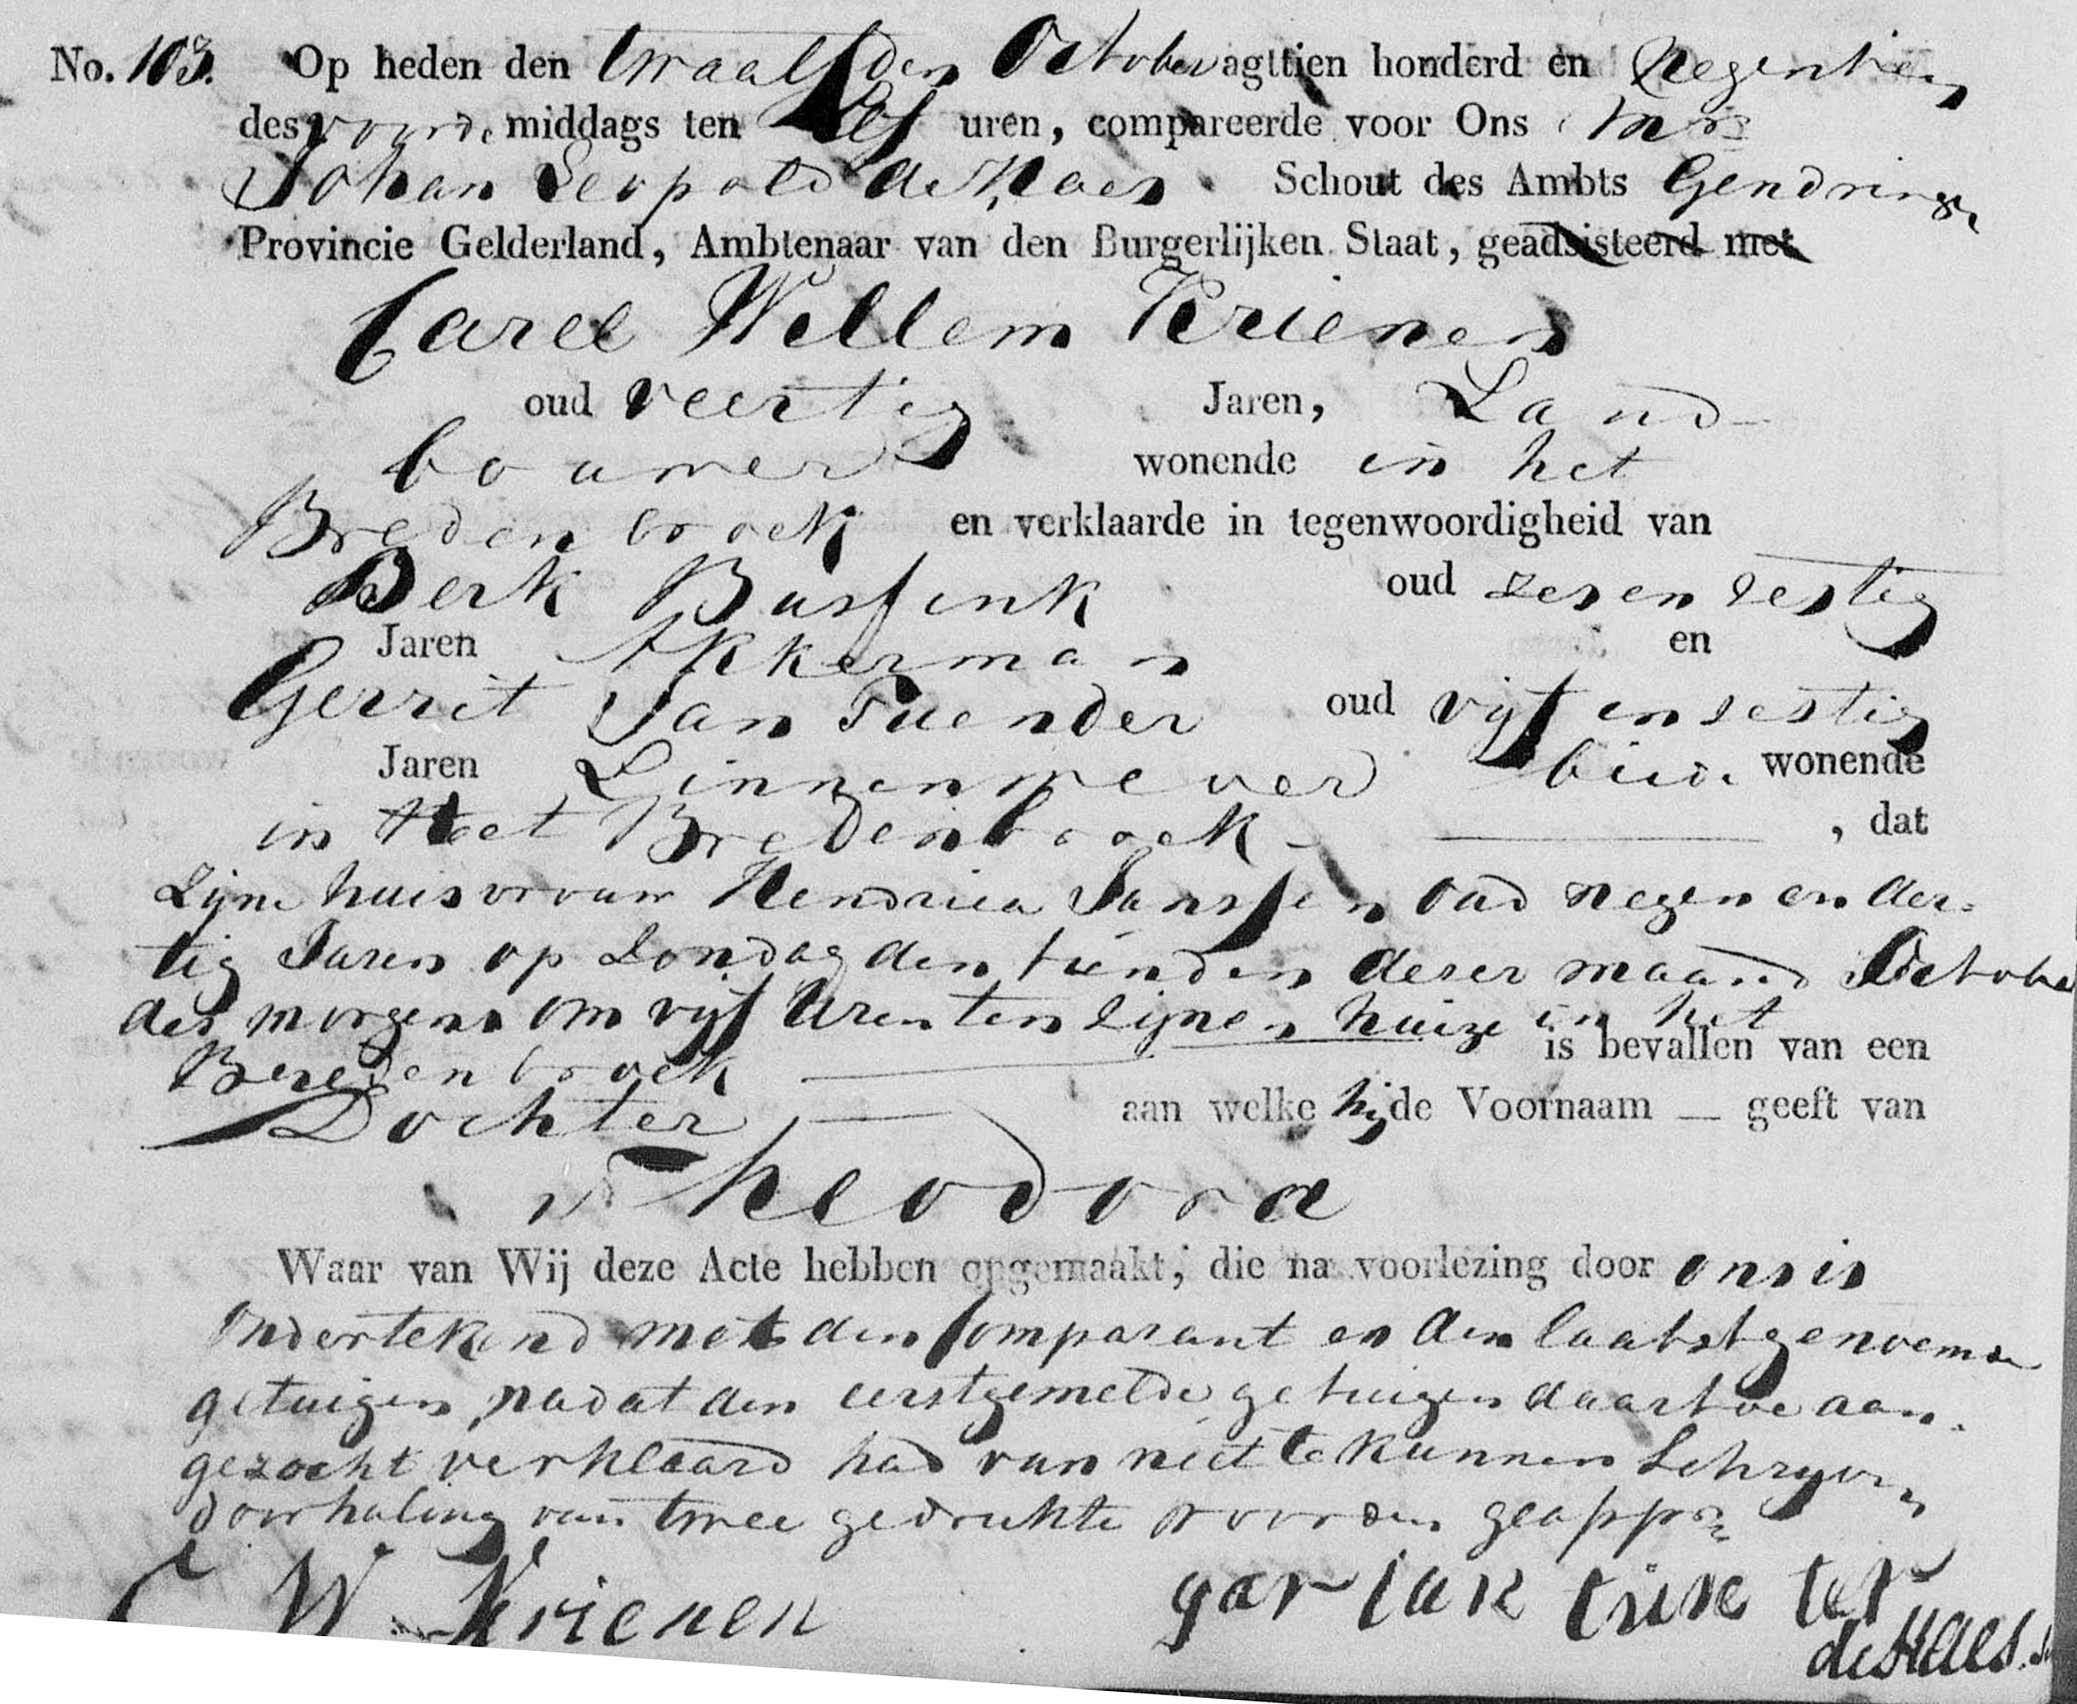 No. 103. Op heden den twaalfden October agttien honderd en Negentien
des voorde middags ten elf uren, compareerde voor Ons Mr
Johan Leopold de Haes Schout des Ambts Gendringen
Provincie Gelderland, Ambtenaar van den Burgerlijken Staat, geadsisteerd met
Carel Willem Krienen
oud veertig Jaren, Land-
bouwer wonende in het
Bredenbroek en verklaarde in tegenwoordigheid van
Derk Bussink oud sesen sestig
Jaren Akkerman en
Gerrit Jan Tuender oud vijf en sestig
Jaren Linnenwever beide wonende
in Het Bredenbroek - , dat
Zijne huisvrouw Hendrica Janssen oud negen en der-
tig Jaren op Zondag den tienden deser maand October
des morgens om vijf Uren ten zijnen huize in het
Beredenbroek is bevallen van een
Dochter aan welke hij de Voornaam — geeft van
Theodora
Waar van Wij deze Acte hebben opgemaakt, die na voorlezing door ons is
Ondertekend met den Comparant en den laatstgenoemde
getuigen, nadat den eerstgemelde getuigen daartoe aan-
gezocht verklaard had van niet te kunnen Schryven
doorhaling van twee gedrukte woorden geappr.
C W Krienen gar jan
de Haes